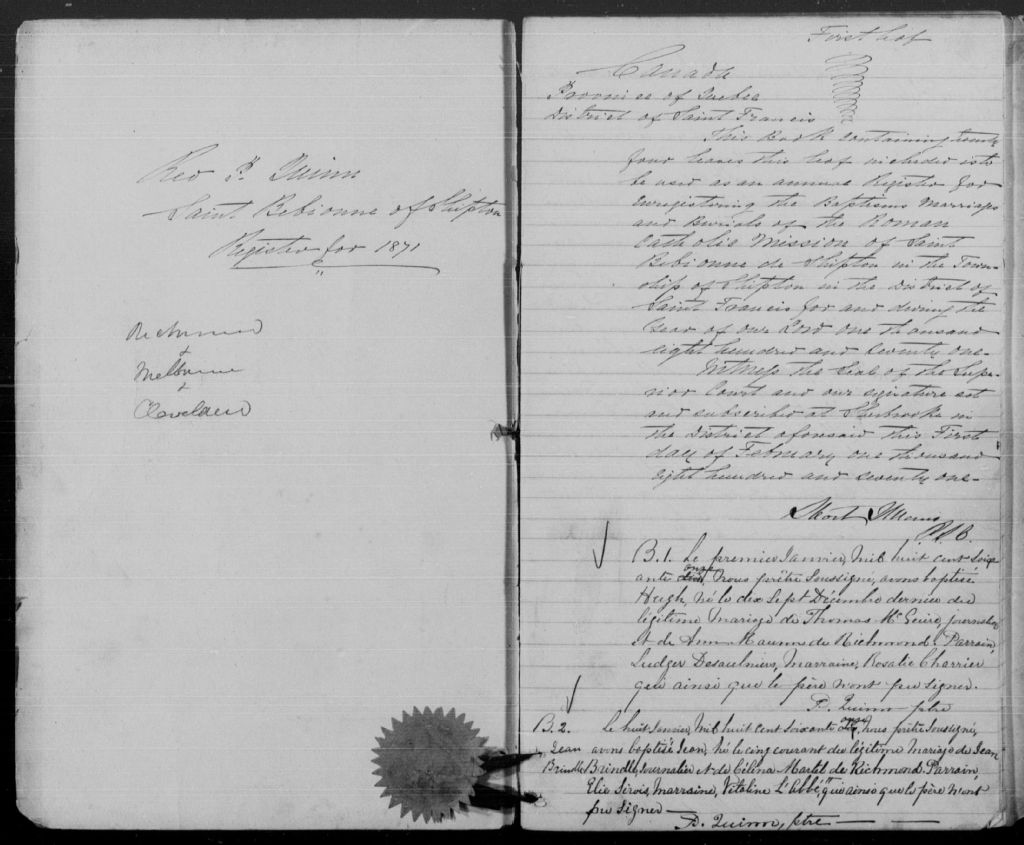 Rev P. Quinn
Saint Bibionne of Shipton
Register for 1871
Richmond
+
Melbourne
+
Cleveland
First leaf
Canada
Province of Quebec
District of Saint Francis
This Book containing twenty
four leaves this leaf included is to
be used as an annual Register for
enregistering the Baptisms Marriages
and Burials of the Roman
Catholic Mission of Saint
Bibionne de Shipton in the Town-
ship of Shipton in the District of
Saint Francis for and during the
Year of our Lord one thousand
eight hundred and seventy one-
Witness the Seal of the Supe-
rior Court and our signature set
and subscribed at Sherbrooke in
the District aforesaid this First
day of February one thousand
eight hundred and seventy one-
Short
B.1. Le premier Janvier, Mil huit cent soix
ante onze Nous prêtre Soussigné, avons baptisé
Hugh, né le dix Sept Décembre dernier du
légitime mariage de Thomas Mc Guire, journalier
et de Ann de Richmond. Parrain,
Ludger Desaulniers, Marraine, Rosalie Charrier
qui ainsi que le père n'ont pu signer.
P. Quinn ptre
B.2. Le huit Janvier, Mil huit cent soixante onze, nous prêtre Soussigné,
Jean avons baptisé Jean, né le cinq courant du légitime mariage de Jean
Brindle Brindle, Journalier et de Célina Martel de Richmond. Parrain,
Elie Sirois, Marraine, Vitaline L'Abbé, qui ainsi que le père n'ont
pu signer —
P. Quinn, ptre — —